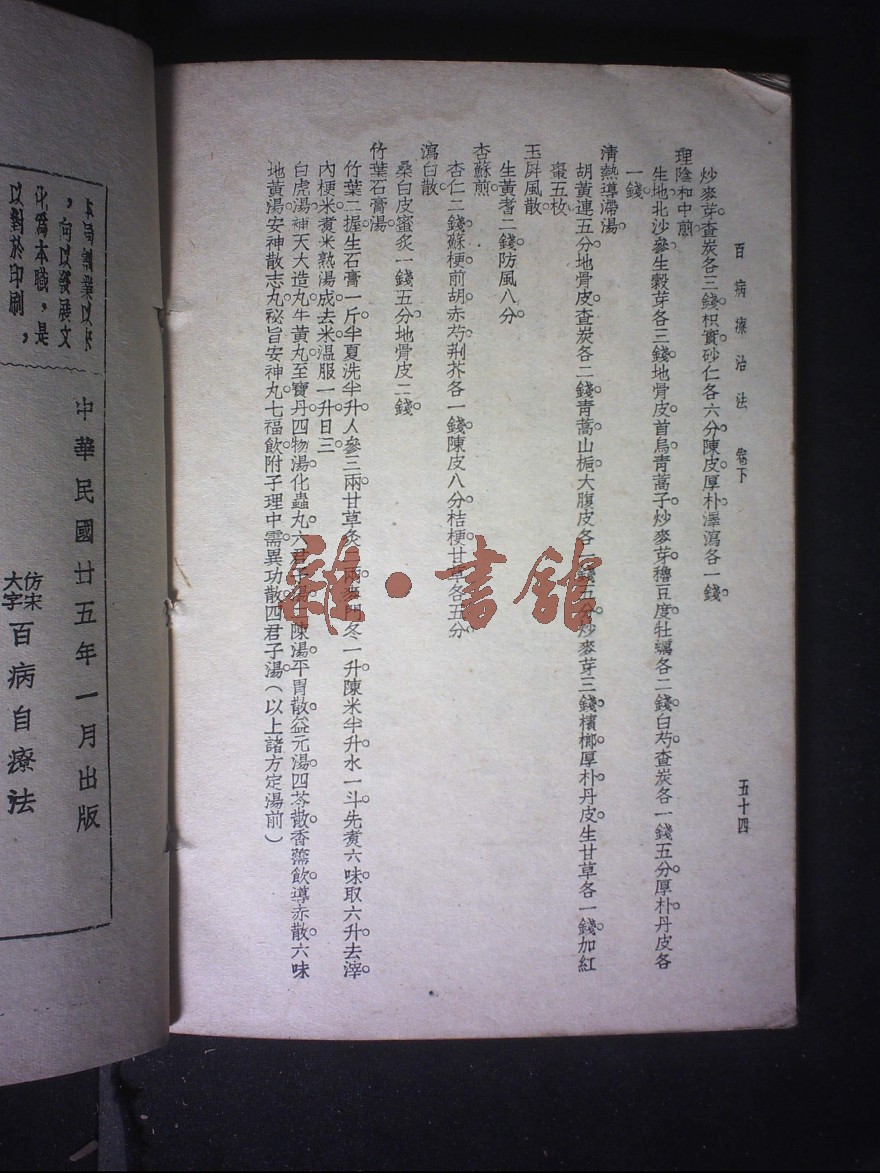 百病療治法 卷下 五十四
炒麥芽查炭各三錢。枳實砂仁各六分。陳皮。厚朴。澤瀉各一錢。
理陰和中煎。
生地北沙參。生穀芽各三錢。地骨皮。首烏。青蒿子。炒麥芽。穭豆度。牡蠣各二錢。白芍。查炭各一錢五分。厚朴。丹皮各
一錢。
清熱導滯湯。
胡黃連五分。地骨皮。查炭各二錢。青蒿。山梔。大腹皮各一錢五分。炒麥芽三錢。檳榔。厚朴。丹皮。生甘草各一錢。加紅
棗五枚
玉屏風散。
生黃耆二錢。防風八分。
杏蘇煎。
杏仁二錢。蘇梗。前胡。赤芍。荆芥各一錢。陳皮八分。桔梗。甘草各五分
瀉白散。
桑白皮蜜炙一錢五分。地骨皮二錢。
竹葉石膏湯。
竹葉二握。生石膏一斤。半夏洗半升。人參三兩。甘草炙二兩。麥門冬一升。陳米半升。水一斗。先煮六味。取六升。去滓。
內梗米。煮米熟。湯成去米。温服一升。日三
白虎湯。神天大造丸。牛黃丸。至寶丹。四物湯。化蟲丸。六君子湯。二陳湯。平胃散。益元湯。四苓散。香薷飲。導赤散。六味
地黃湯。安神散。志丸。秘旨安神丸。七福飲。附子理中。需異功散。四君子湯。(以上諸方定湯前)
中華民國廿五年一月出版
仿宋
大字
百病自療法
，向以發展文
化爲本職，是
以對於印刷，